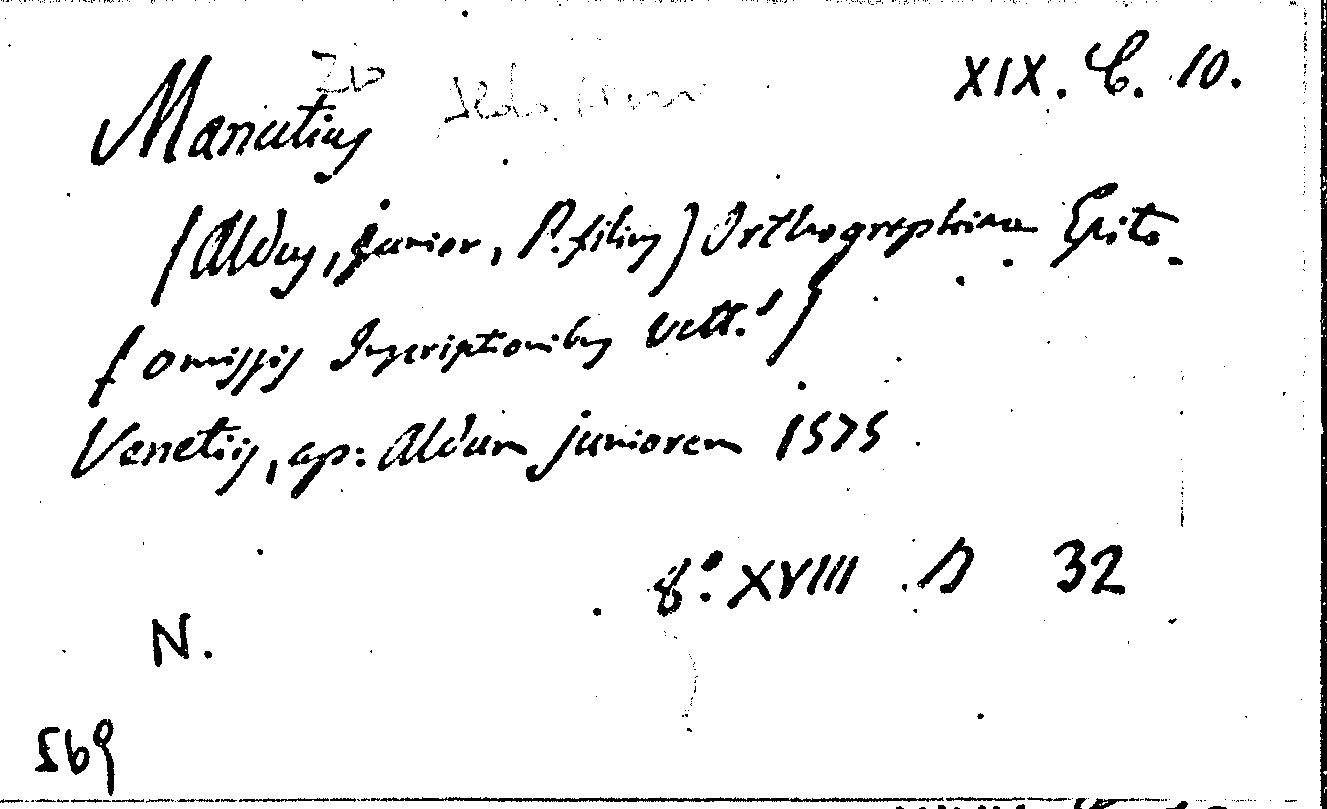 XIX. C. 10.
Manutius
(Aldus, junior, P. filius) Orthographiae Epito-
[omissis Inscriptionibus vett.!]
Venetiis, ap: Aldum juniorem 1575
8º. XVIII D 32
N.
569